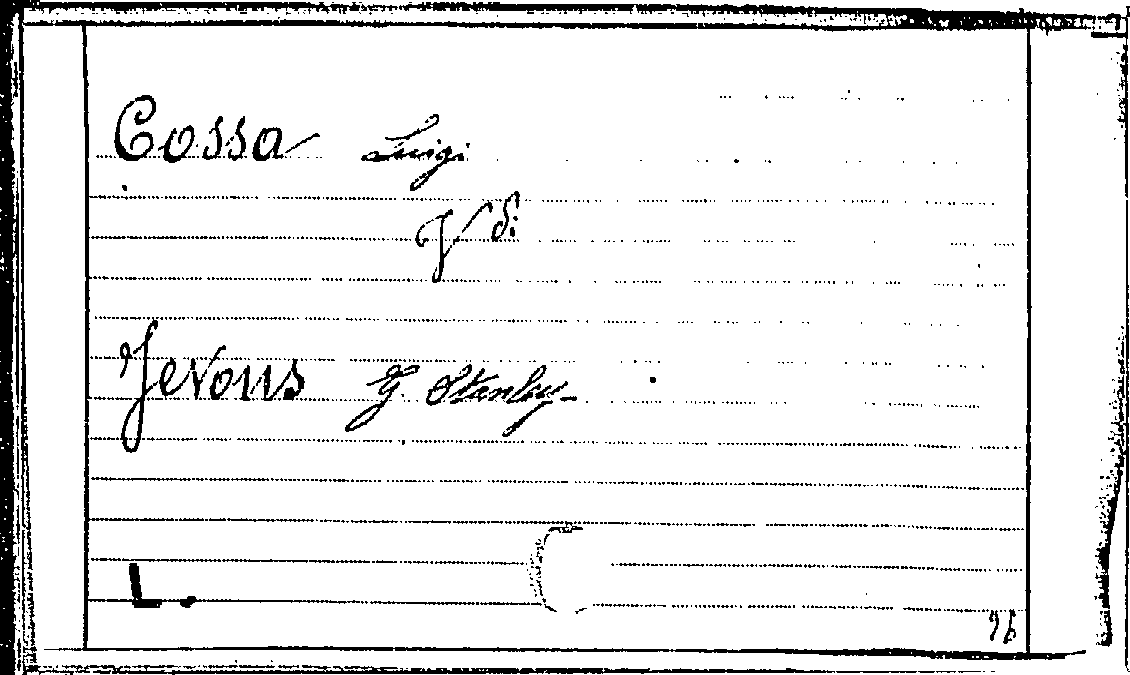 Cossa Luigi
V di
Jevons G. Stanley
L.
96